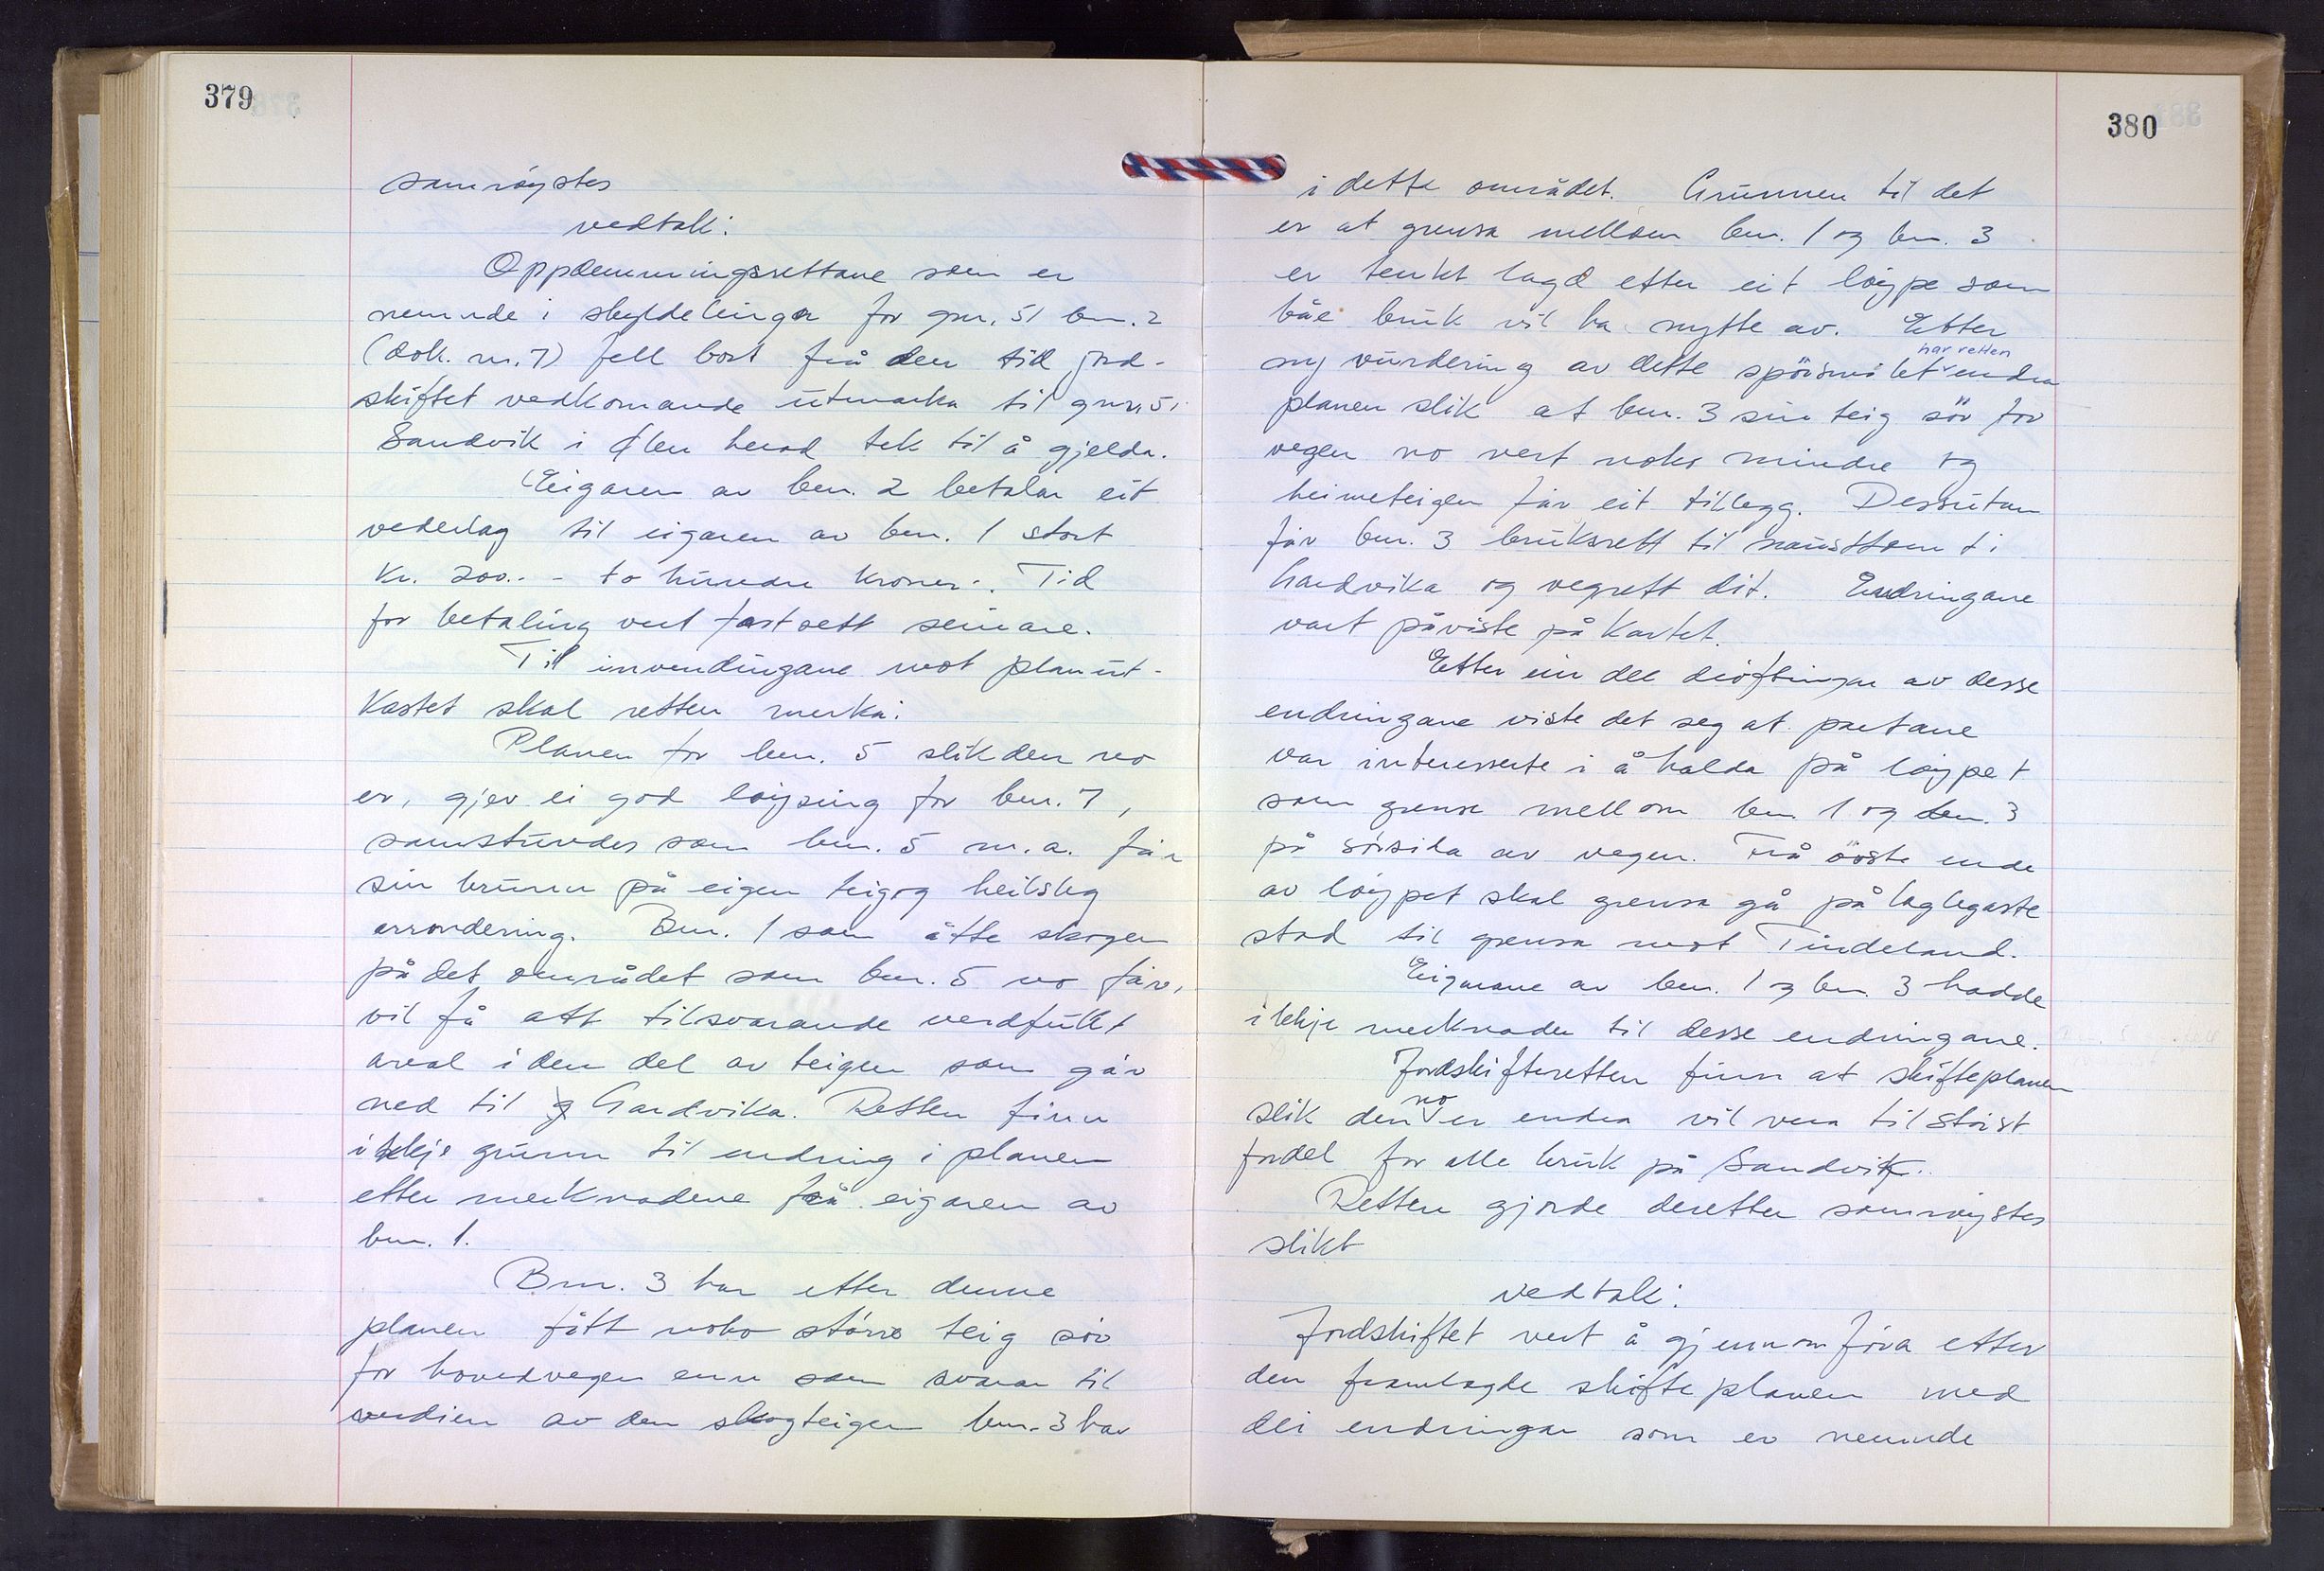 379
samrøystes
vedtak:
Oppdemmingsrettane som er
nemnde i skyldelinga for gnr. 51 bnr. 2
(dok. nr. 7) fell bort frå den tid jord-
skiftet vedkomande utmarka til gnr. 51
Sandvik i Ølen herad tek til å gjelda.
Eigaren av bnr. 2 betalar eit
vederlag til eigaren av bnr. 1 stort
kr. 200.- - to hundre kroner-. Tid
for betaling vert fastsett seinare.
Til innvendingane mot planut-
kastet skal retten merka:
Planen for bnr. 5 slik den no
er, gjev ei god løysing for bnr. 7,
samstundes som bnr. 5 m.a. får
sin brunn på eigen teig og heilsleg
arrondering. Bnr. 1 som åtte skogen
på det området som bnr. 5 no får,
vil få att tilsvarande verdfullt
areal i den del av teigen som går
ned til Gardvika. Retten finn
ikkje grunn til endring i planen
etter merknadene frå eigaren av
bnr. 1.
Bnr. 3 har etter denne
planen fått noko større teig sør
for hovedvegen enn som svarar til
verdien av den skogteigen bnr. 3 har
380
i dette området. Grunnen til det
er at grensa mellom bnr. 1 og bnr. 3
er tenkt lagd etter eit løype som
båe bruk vil ha nytte av. Etter
har retten
ny vurdering av dette spørsmålet endra
planen slik at bnr. 3 sin teig sør for
vegen no vert noko mindre og
heimeteigen får eit tillegg. Dessutan
får bnr. 3 bruksrett til nausttomt i
Gardvika og vegrett dit. Endringane
vart påviste på kartet.
Etter ein del drøftingar av desse
endringane viste det seg at partane
var interesserte i å halda på løypet
som grense mellom bnr. 1 og bnr. 3
på sørsida av vegen. Frå øvste ende
av løypet skal grensa gå på laglegaste
stad til grensa mot Tindeland.
Eigarane av bnr. 1 og bnr. 3 hadde
ikkje merknader til desse endringane.
Jordskifteretten finn at skifteplanen
no
slik den er endra vil vera til størst
fordel for alle bruk på Sandvik.
Retten gjorde deretter samrøystes
slikt
vedtak:
Jordskiftet vert å gjennomføra etter
den framlagde skifteplanen med
dei endringar som er nemnde